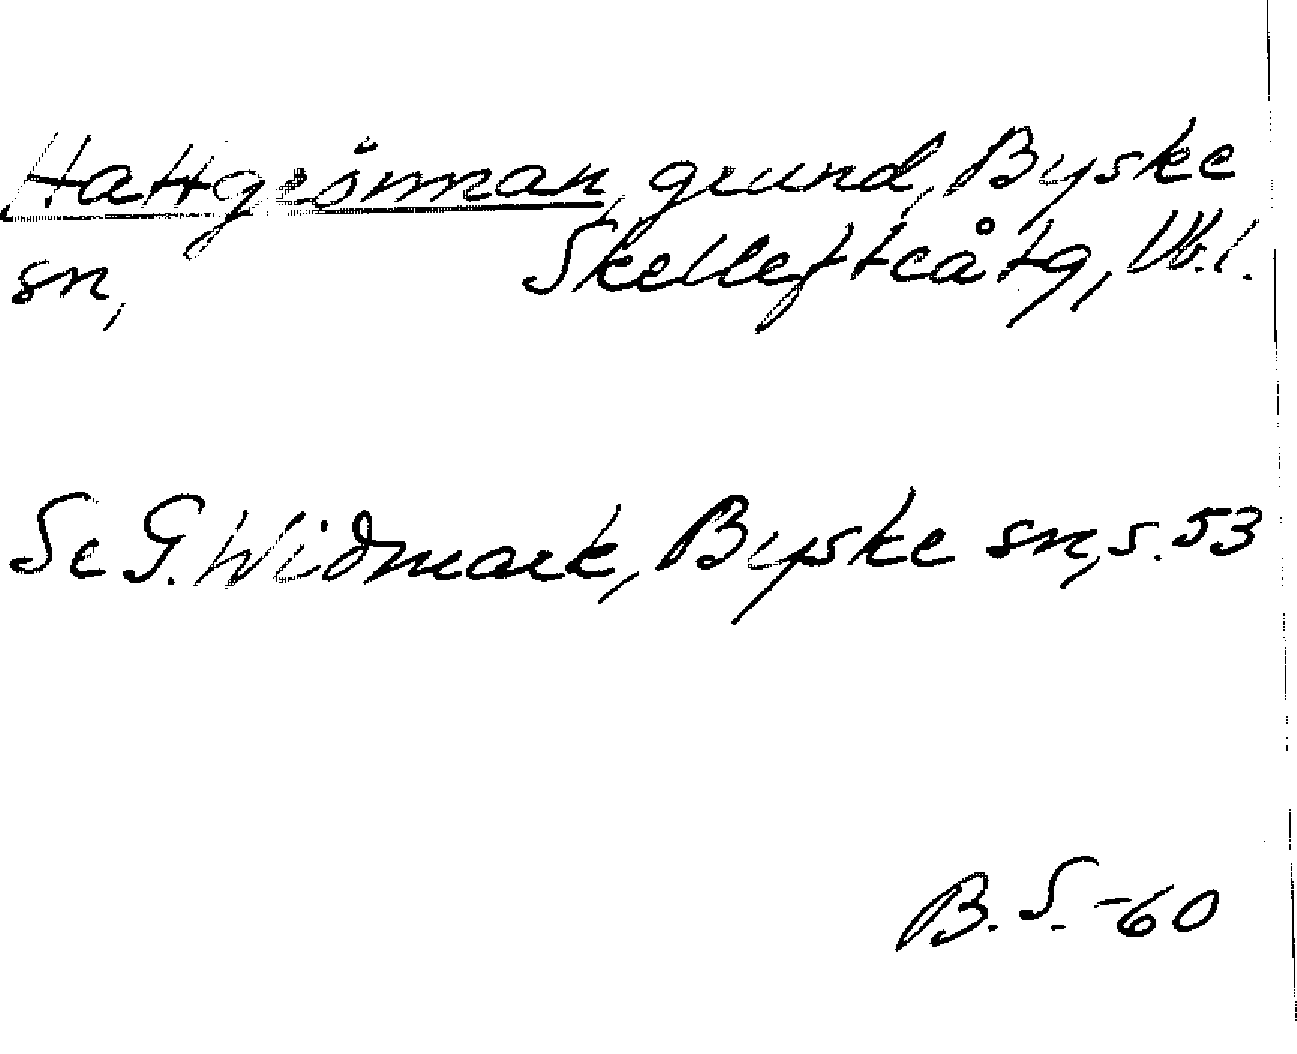 Hattgrönnan, grund, Byske
sn, Skellefteå tg, Vb.l.
Se G. Widmark, Byske sn, s. 53
B.S. -60